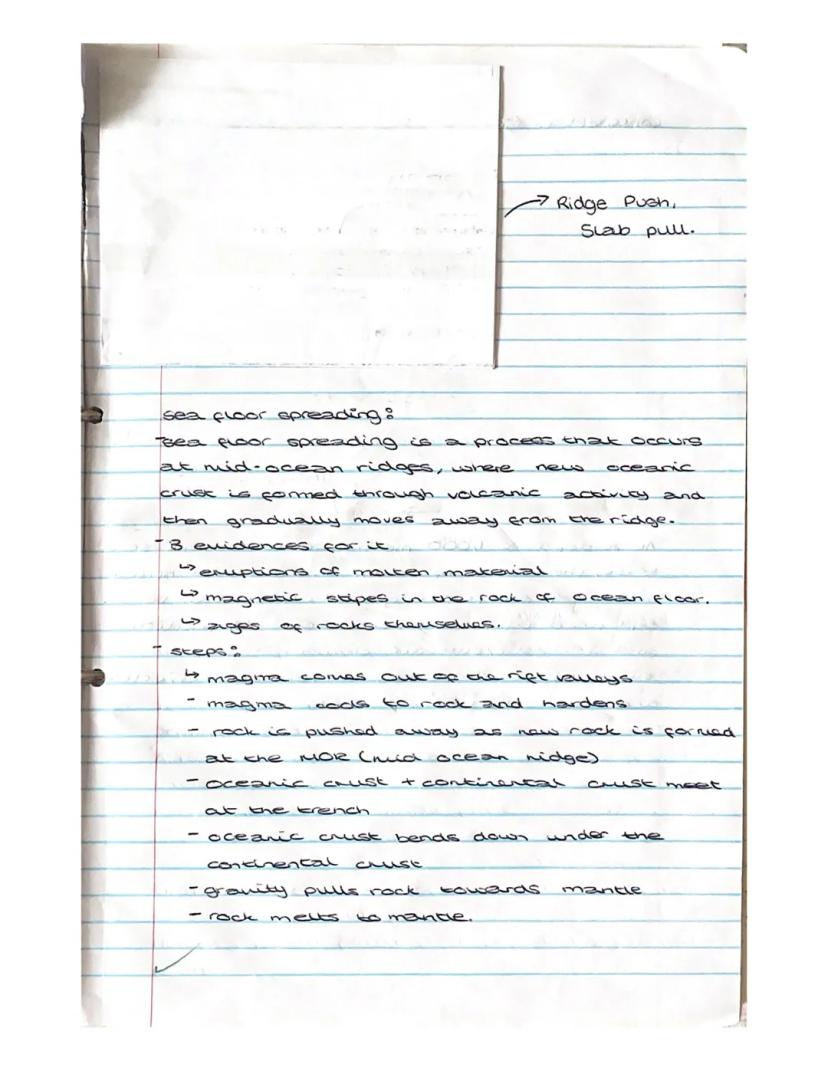 → Ridge Push,
Slab pull.
sea floor spreading:
-sea floor spreading is a process that occurs
at mid-ocean ridges, where new oceanic
crust is formed through volcanic activity and
then gradually moves away from the ridge.
- 3 evidences for it
↳ eruptions of molten material
↳ magnetic stipes in the rock of ocean floor.
↳ ages of rocks themselves.
- steps:
↳ magma comes out of the rift valleys
- magma cools to rock and hardens
- rock is pushed away as new rock is formed
at the MOR (mid ocean ridge)
- oceanic crust + continental crust meet
at the trench
- oceanic crust bends down under the
continental crust
- gravity pulls rock towards mantle
- rock melts to mantle.